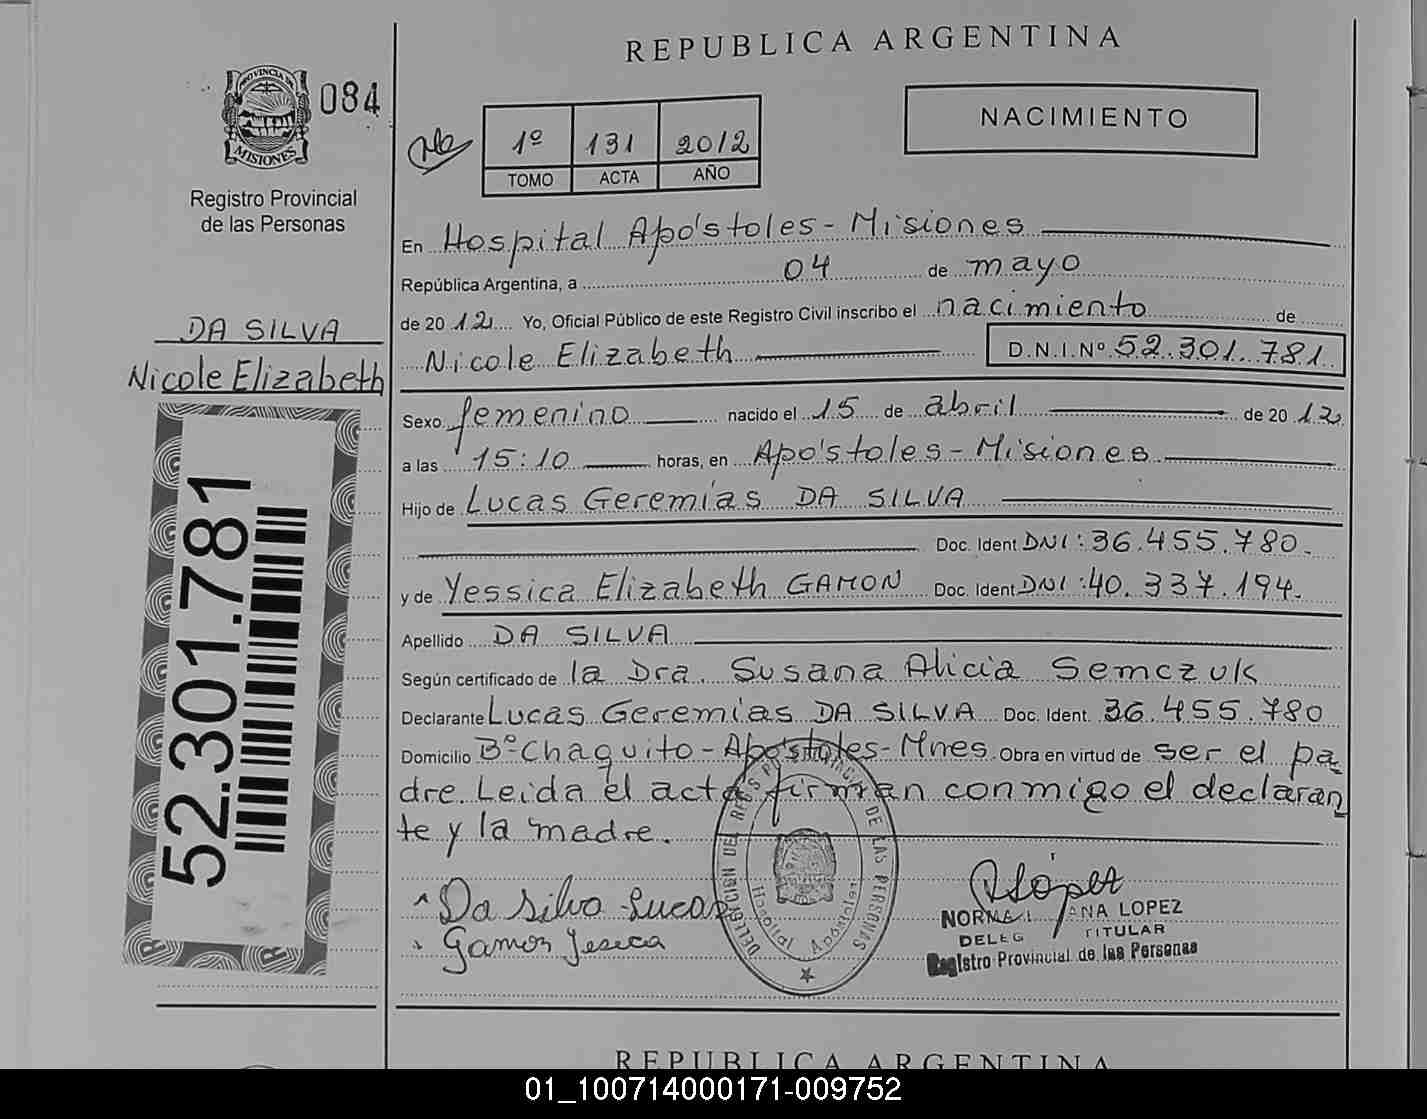 REPUBLICA ARGENTINA
PROVINCIA DE
MISIONES
084
NACIMIENTO
1º 131 2012
TOMO ACTA AÑO
Registro Provincial
de las Personas
En Hospital Apóstoles - Misiones
República Argentina, a 04 de mayo
de 2012 Yo, Oficial Público de este Registro Civil inscribo el nacimiento de
DA SILVA
Nicole Elizabeth D.N.I.Nº 52.301.781
Nicole Elizabeth
Sexo femenino nacido el 15 de abril de 2012
a las 15:10 horas, en Apóstoles - Misiones
Hijo de Lucas Geremías DA SILVA
Doc. Ident DNI: 36.455.780.
y de Yessica Elizabeth GAMON Doc. Ident DNI: 40.337.194.
Apellido DA SILVA
Según certificado de la Dra. Susana Alicia Semczuk
Declarante Lucas Geremías DA SILVA Doc. Ident. 36.455.780
Domicilio Bº Chaquito - Apóstoles - Mnes. Obra en virtud de ser el pa-
dre. Leida el acta firman conmigo el declaran
te y la madre.
52.301.781
Da Silva Lucas
Gamon Jesica
DE LAS PERSONAS
Hospital Apóstoles
López
LOPEZ
TITULAR
Registro Provincial de las Personas
REPUBLICA ARGENTINA
01_100714000171-009752